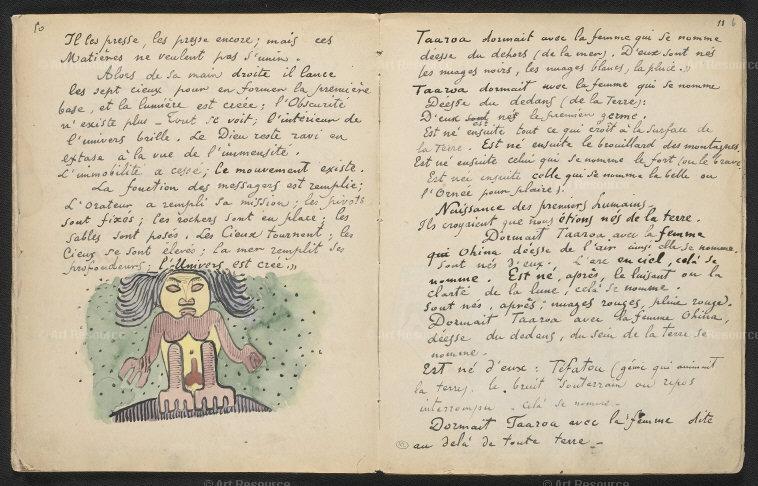 10
Il les presse, les presse encore; mais ces
Matières ne veulent pas s'unir.
Alors de sa main droite il lance
les sept cieux pour en former la première
base, et la lumière est créée; l'Obscurité
n'existe plus — Tout se voit; l'intérieur de
l'univers brille. Le Dieu reste ravi en
extase à la vue de l'immensité.
L'immobilité a cessé; le mouvement existe.
La fonction des messagers est remplie;
L'Orateur a rempli sa mission; les pivots
sont fixés; les rochers sont en place; les
sables sont posés. Les Cieux tournent; les
Cieux se sont élevés; la mer remplit ses
profondeurs; l'Univers est créé.»
11
Taaroa dormait avec la femme qui se nomme
déesse du dehors (de la mer). D'eux sont nés
les nuages noirs, les nuages blancs, la pluie.»
Taaroa dormait avec la femme qui se nomme
Déesse du dedans (de la terre):
D'eux est né le premier germe.
Est né ensuite tout ce qui croît à la surface de
la terre. Est né ensuite le brouillard des montagnes.
Est né ensuite celui qui se nomme le fort (ou le brave
Est née ensuite celle qui se nomme la belle ou
l'Ornée pour plaire).
Naissance des premiers humains
Ils croyaient que nous étions nés de la terre.
Dormait Taaroa avec la femme
qui Ohina déesse de l'air ainsi elle se nomme.
Sont nés d'eux. L'arc en ciel, celà se
nomme. Est né, après, le luisant ou la
clarté de la lune, celà se nomme.
Sont nés, après; nuages rouges, pluie rouge.
Dormait Taaroa avec la femme Ohina,
déesse du dedans, du sein de la terre se
nomme.
Est né d'eux: Téfatou (génie qui animait
la terre). le bruit souterrain ou repos
interrompu. celà se nomme.
Dormait Taaroa avec la femme dite
au delà de toute terre —
© Art Resource